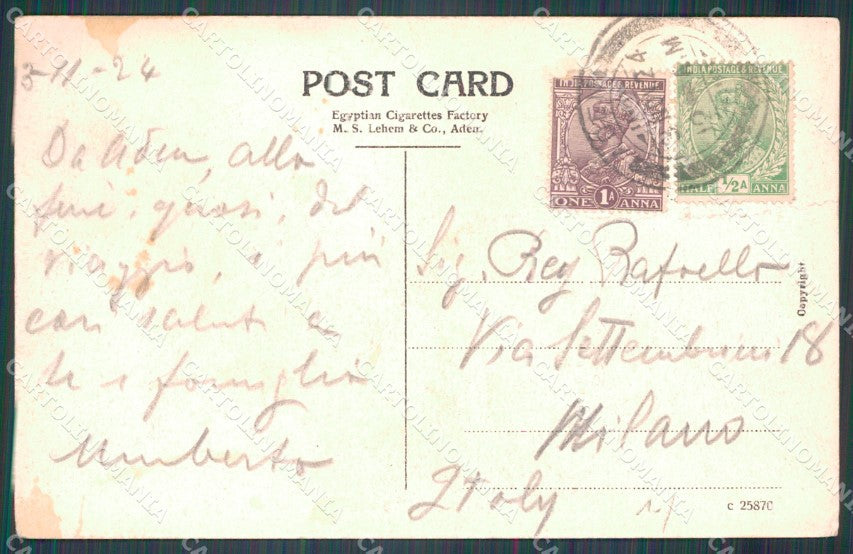 3-11-24
POST CARD
Egyptian Cigarettes Factory
M. S. Lehem & Co., Aden.
Da Aden, alla
fine, quasi, del
viaggio, i più
cari saluti a
te e famiglia
Umberto
INDIA POSTAGE & REVENUE
1A
ONE ANNA
INDIA POSTAGE & REVENUE
HALF 1/2A ANNA
Sig. Rey Raffaello
Via Settembrini 18
Milano
Italy
Copyright
c 25870
CARTOLINOMANIA